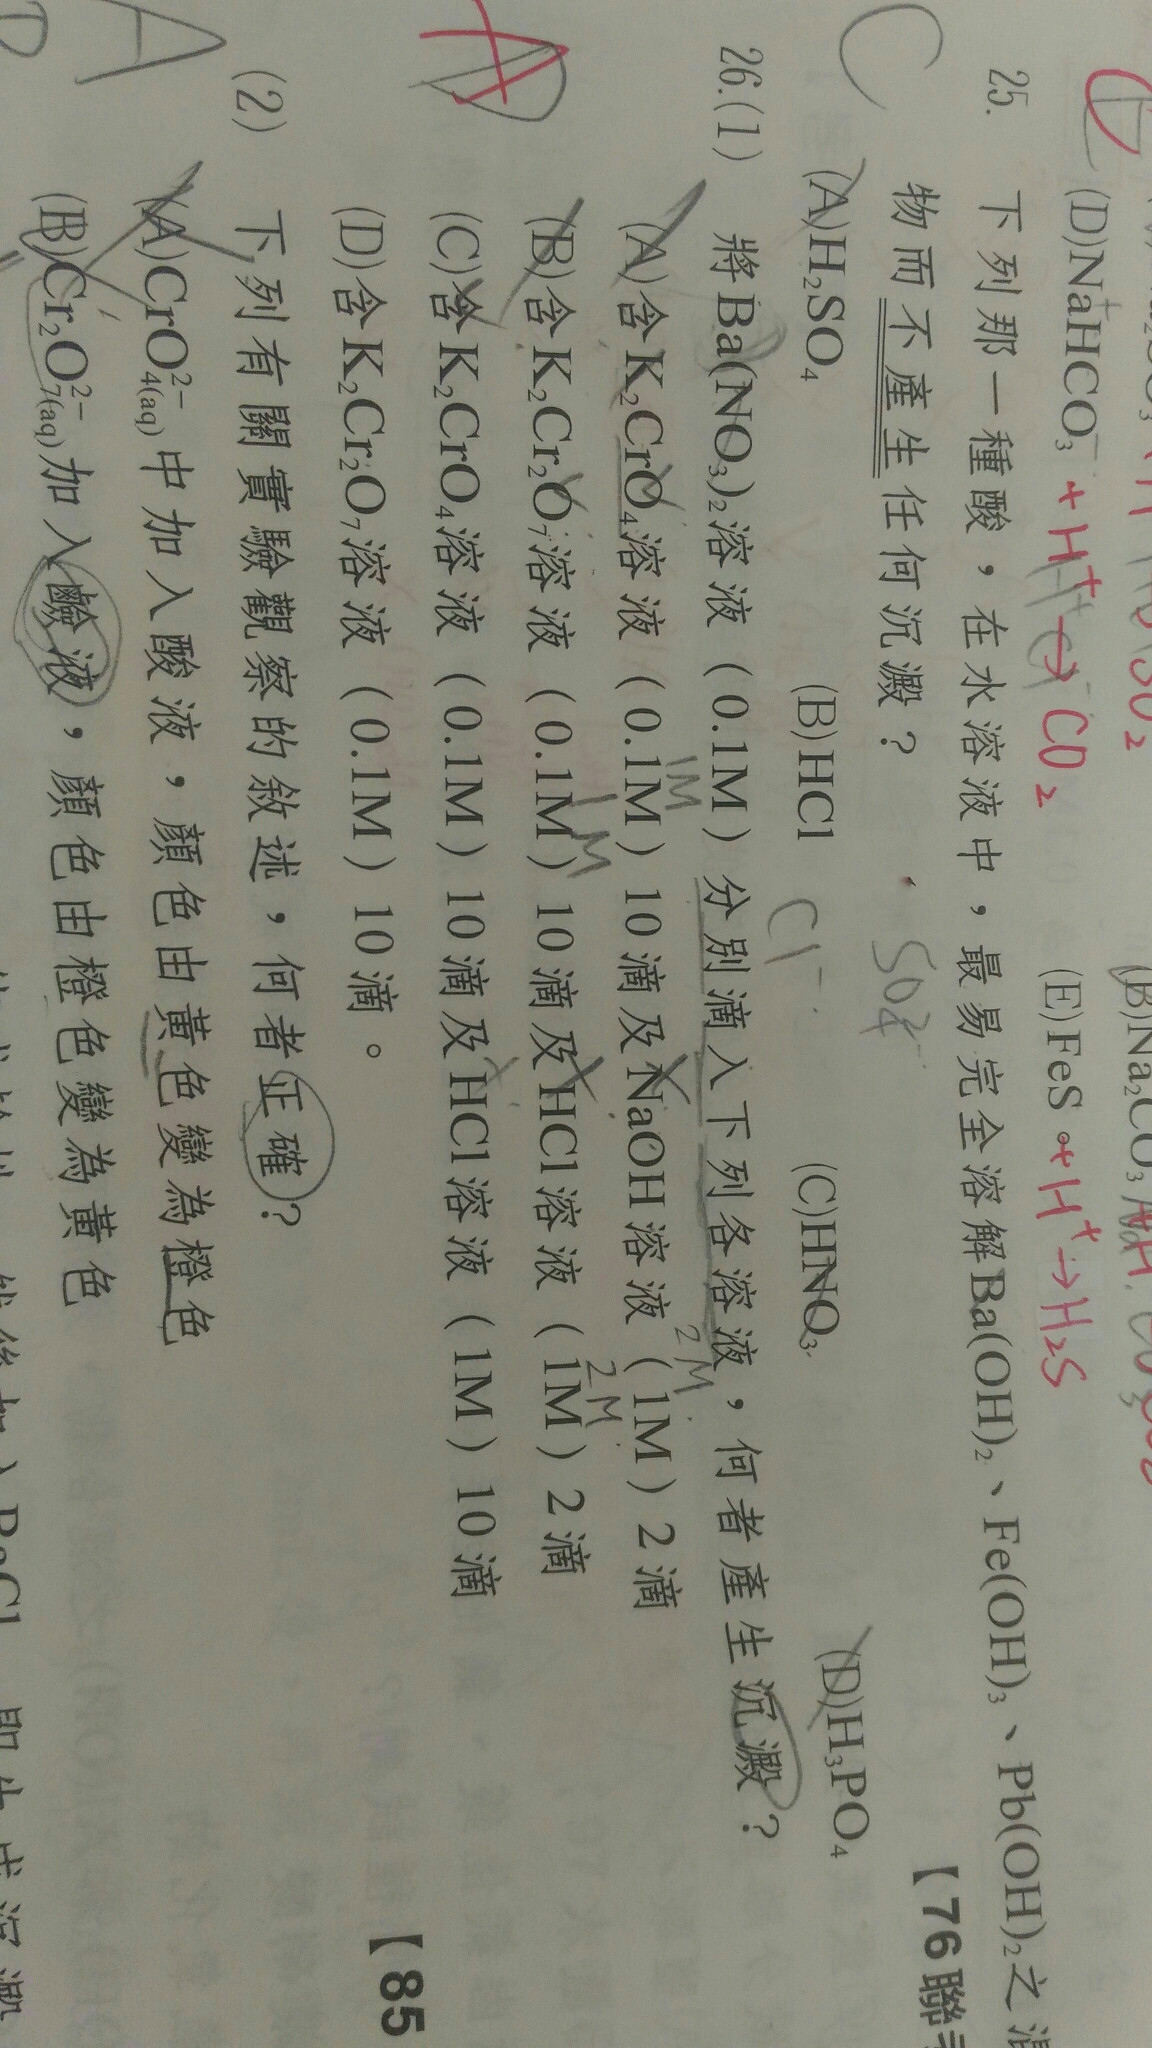 (B)Na₂CO₃
(D)NaHCO₃ + H⁺ → CO₂ (E)FeS + H⁺ → H₂S
25. 下列那一種酸，在水溶液中，最易完全溶解Ba(OH)₂、Fe(OH)₃、Pb(OH)₂之
物而不產生任何沉澱？ SO₄²⁻ 【76聯
C (A)H₂SO₄ (B)HCl (C)HNO₃ (D)H₃PO₄
Cl⁻
26.(1) 將Ba(NO₃)₂溶液（0.1M）分別滴入下列各溶液，何者產生沉澱？
1M 2M
(A)含K₂CrO₄溶液（0.1M）10滴及NaOH溶液（1M）2滴
1M 2M
A (B)含K₂Cr₂O₇溶液（0.1M）10滴及HCl溶液（1M）2滴
(C)含K₂CrO₄溶液（0.1M）10滴及HCl溶液（1M）10滴
(D)含K₂Cr₂O₇溶液（0.1M）10滴。 【85
(2) 下列有關實驗觀察的敘述，何者正確？
A (A)CrO₄²⁻(aq)中加入酸液，顏色由黃色變為橙色
B (B)Cr₂O₇²⁻(aq)加入鹼液，顏色由橙色變為黃色